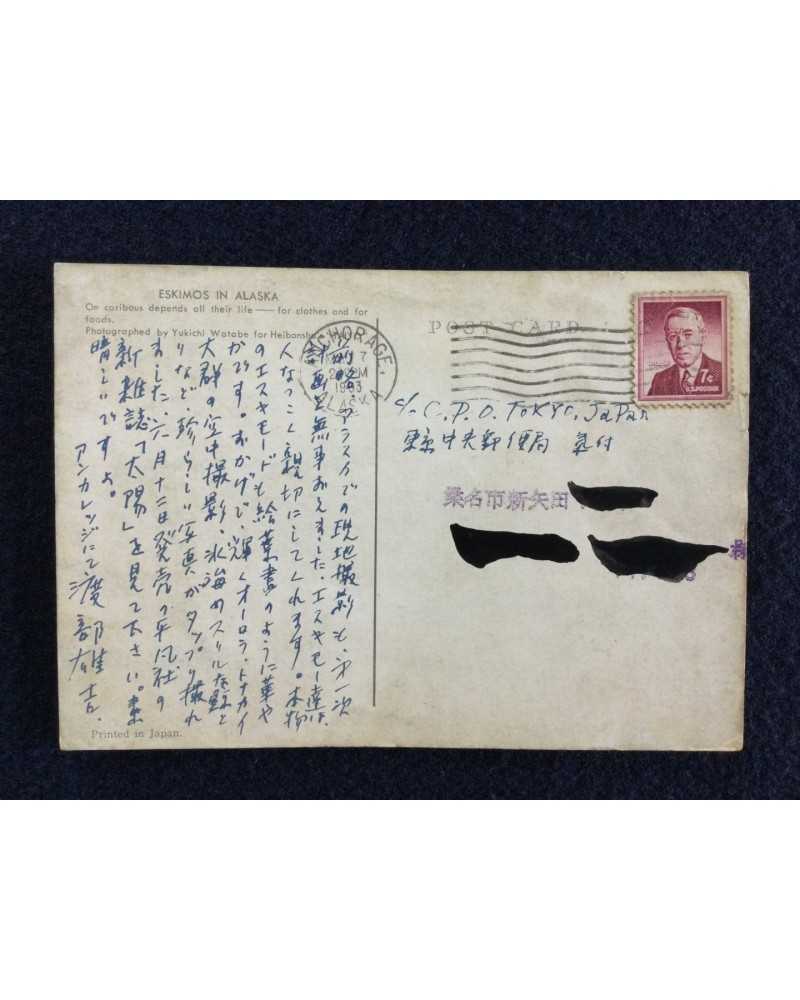 ESKIMOS IN ALASKA
On caribous depends all their life — for clothes and for
foods.
Photographed by Yukichi Watabe for Heibonsha
POST CARD
ANCHORAGE,
7
1963
ALASKA
7¢
U.S. POSTAGE
c/o C.P.O. TOKYO, JaPan
東京中央郵便局 気付
桑名市新矢田
前略、アラスカでの現地撮影も、第一次
計画を無事おえました。エスキモー達は、
人なつっこく親切にしてくれます。本物
のエスキモードも絵葉書のように華や
かです。おかげで、輝くオーロラ、トナカイ
大群の空中撮影、氷海のスリルな
りなど、珍らしい写真がタップリ撮れ
ました。六月十二日発売の平凡社の
新雑誌「太陽」を見て下さい。素
晴しいですよ。
アンカレッジにて渡部雄吉.
Printed in Japan.